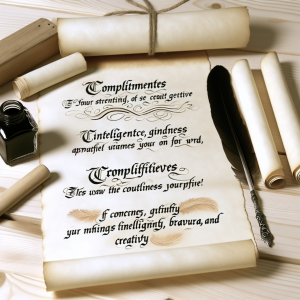 Complimentes
E Your strenting, of se ceutl gerrive
Cinteligentce, gindness
apnatiful wames your on for wrd,
Cromplifitieves
Tles wuw the coutliness yourpfire!
ff concenry, grfinfiy
yur mhings finelligniny, bravura, and
creativfy